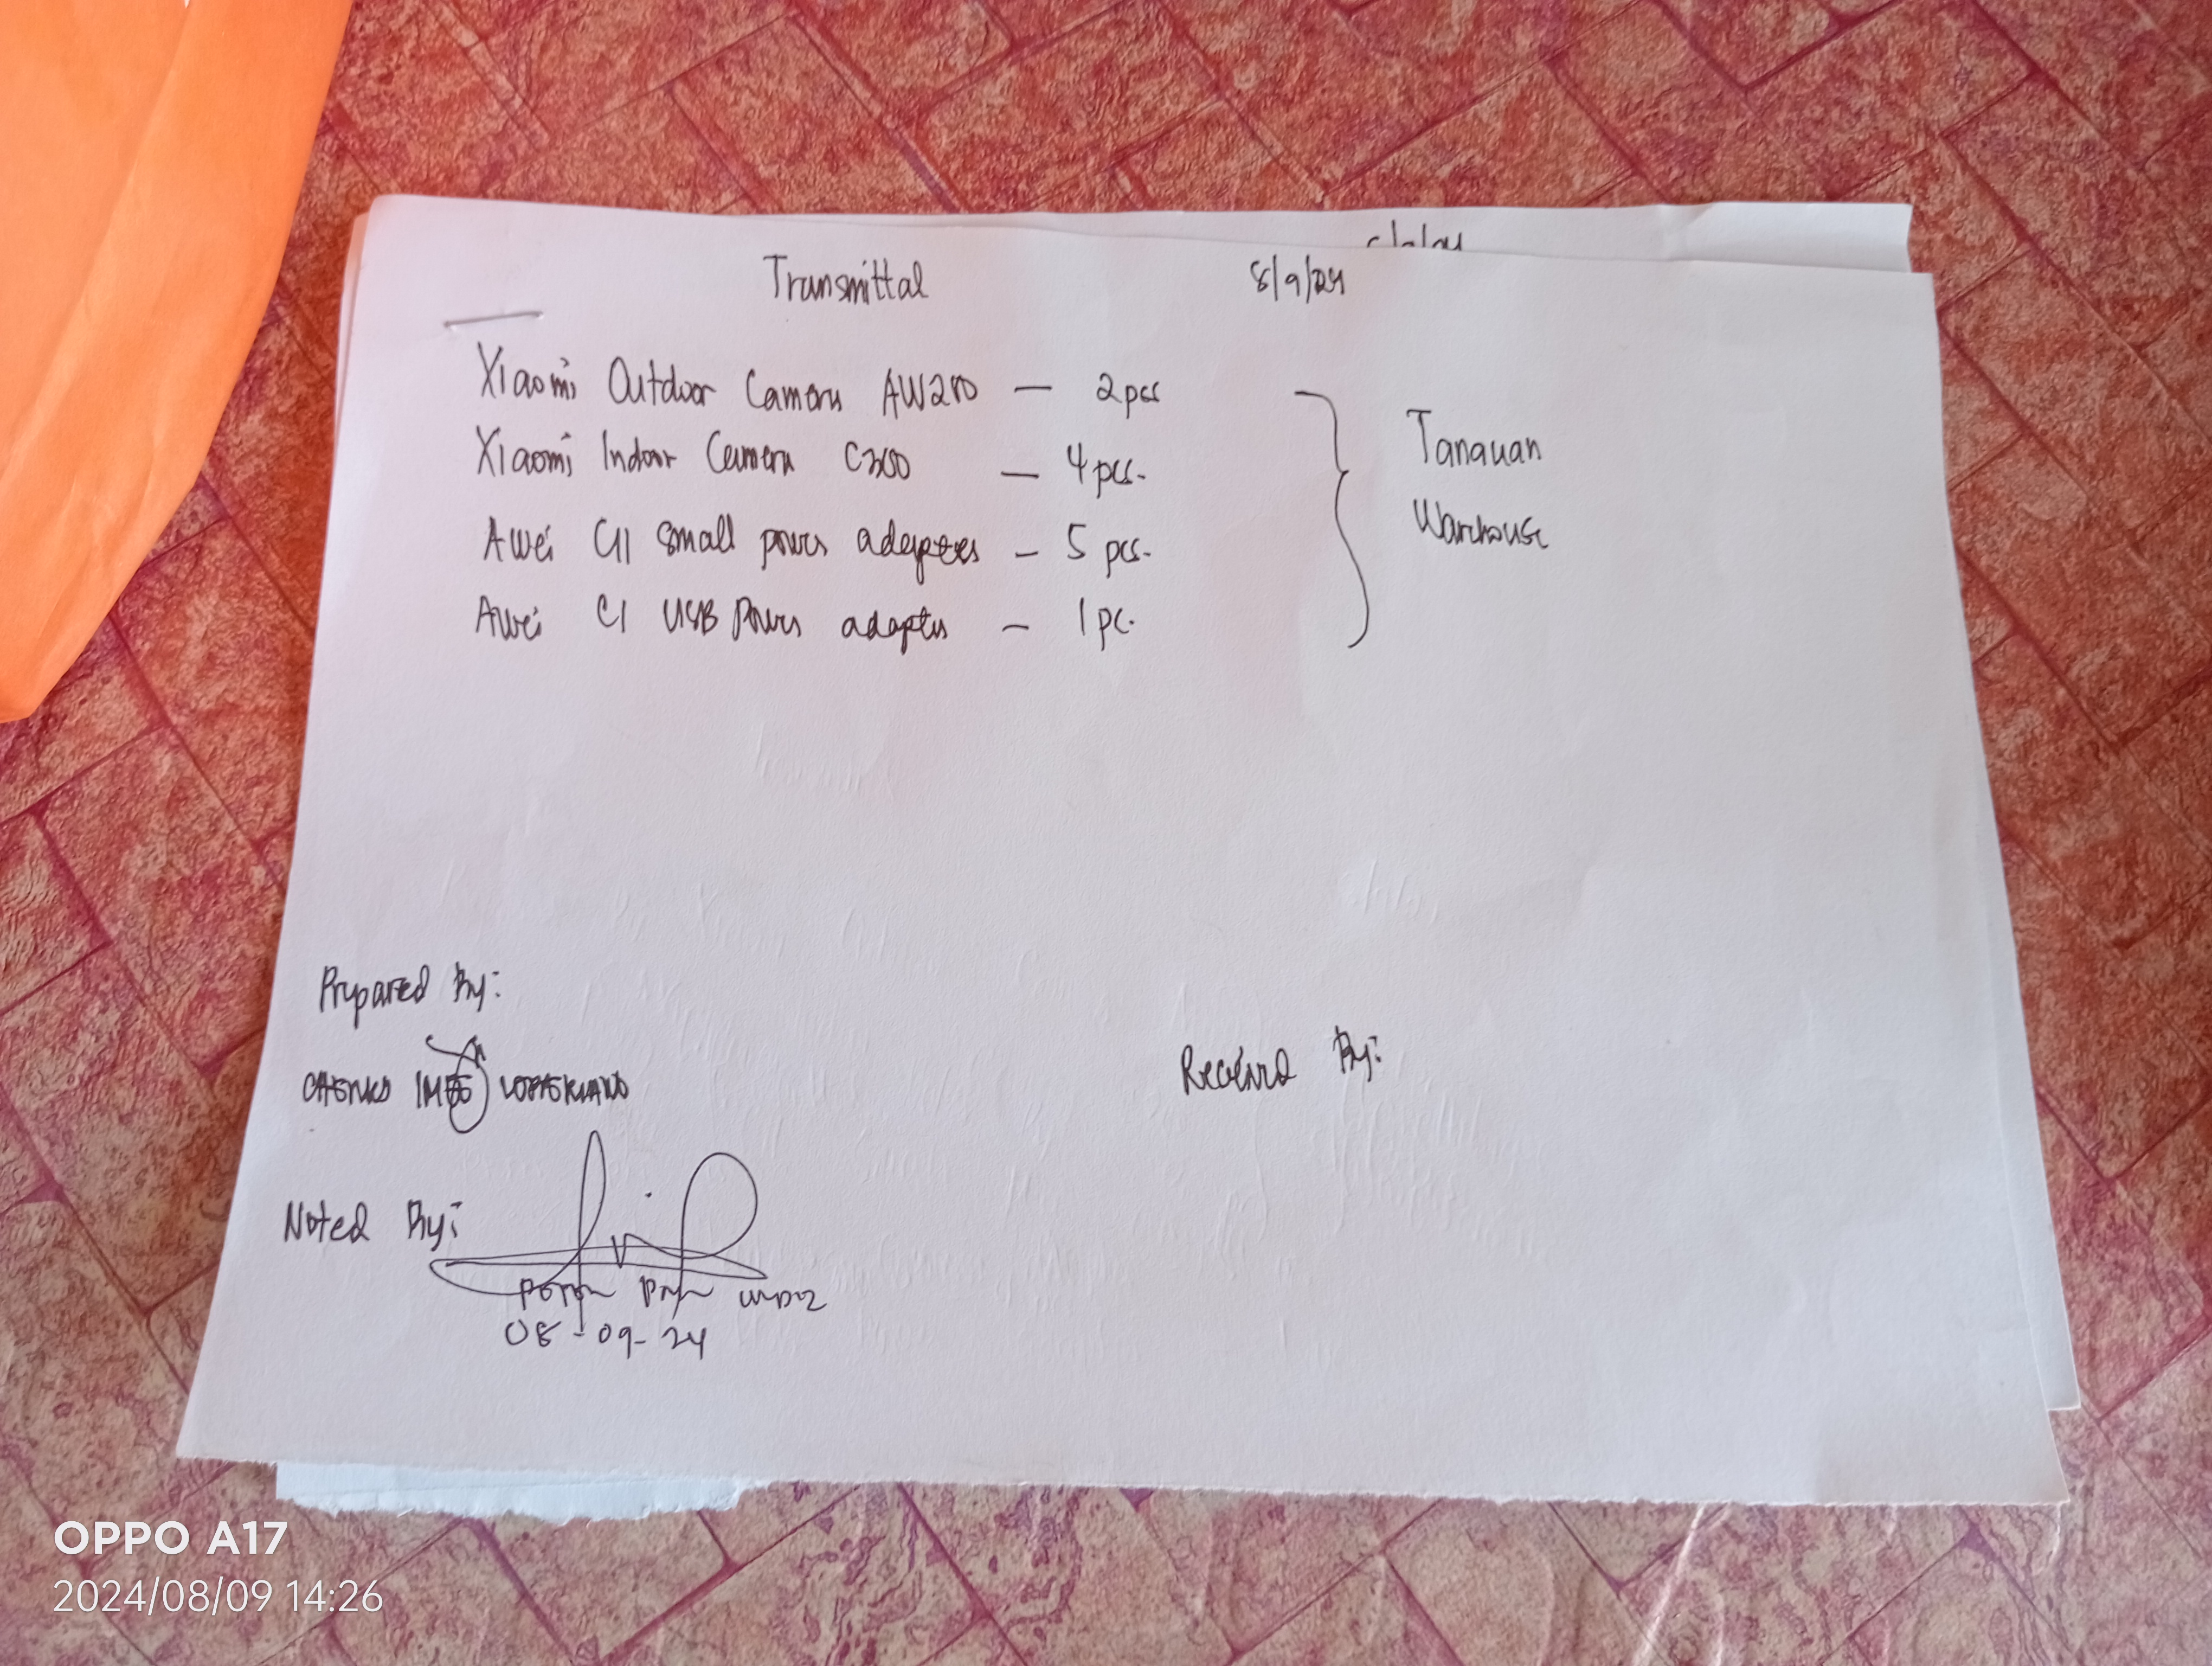 Transmittal 8/9/24
Xiaomi Outdoor Camera AW200 — 2pcs
Xiaomi Indoor Camera C300 — 4pcs.
Awei small power adapters - 5 pcs.
Awei C1 USB Power adapter - 1pc.
Tanauan
Warehouse
Prepared By:
Received By:
Noted By:
08-09-24
OPPO A17
2024/08/09 14:26